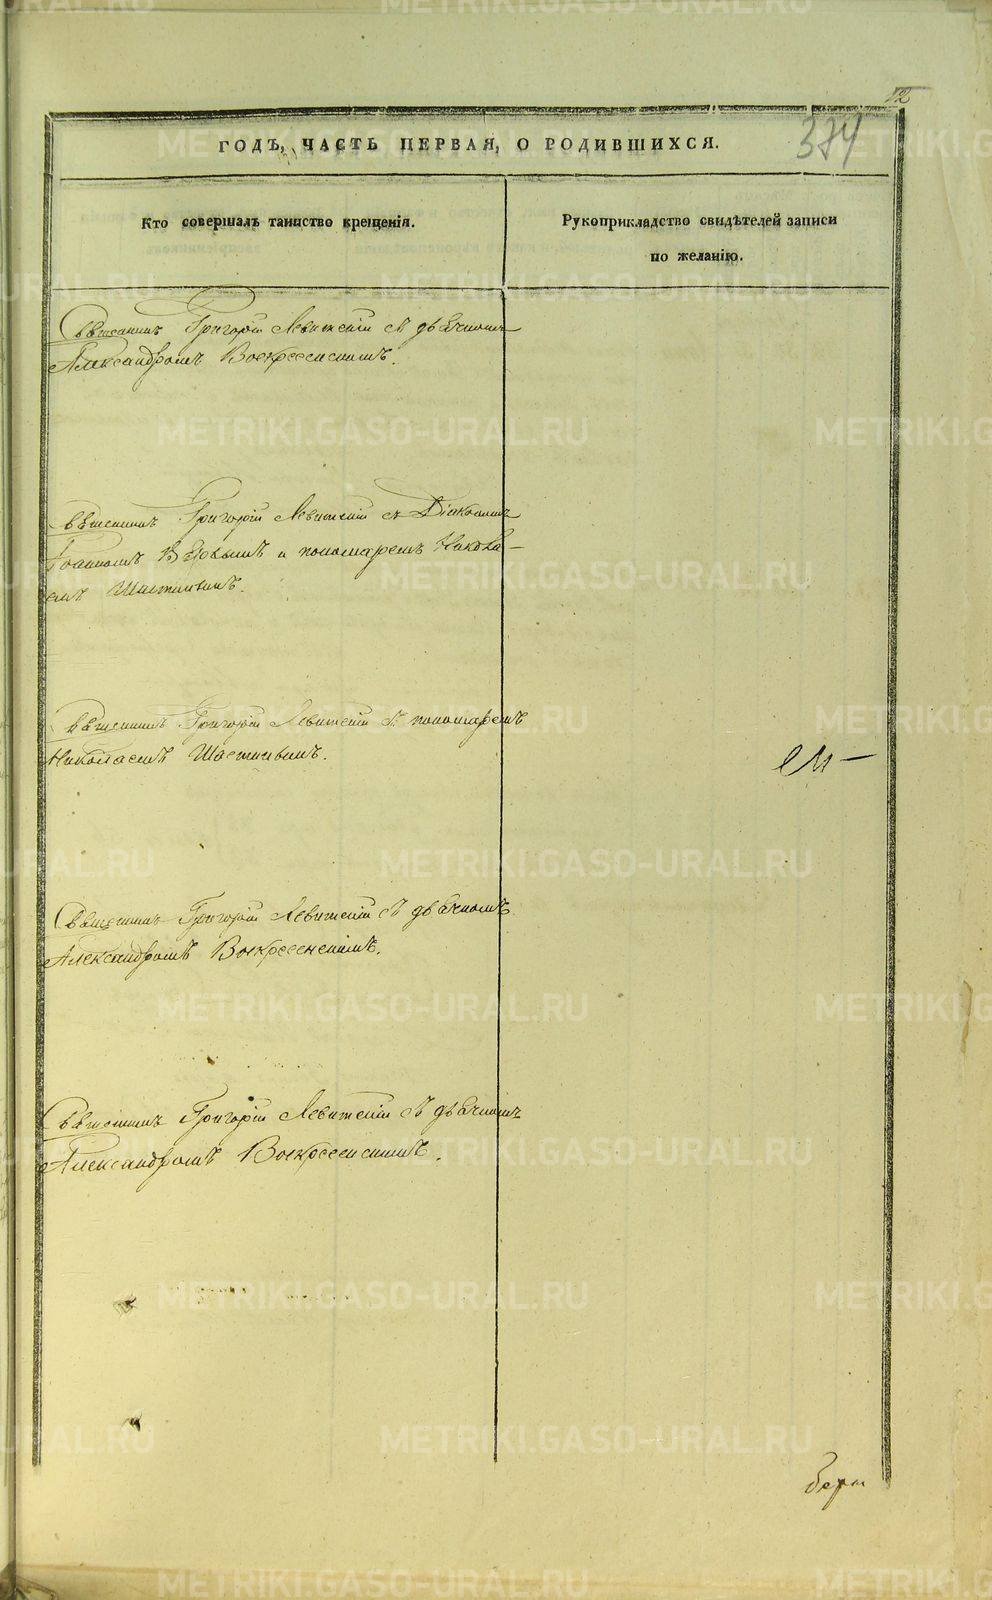 12
374
ГОДЪ, ЧАСТЬ ПЕРВАЯ, О РОДИВШИХСЯ.
Кто совершалъ таинство крещенія.
Рукоприкладство свидѣтелей записи
по желанію.
Священникъ Григорій Левитскій съ дьячкомъ
Александромъ Воскресенскимъ.
Священникъ Григорій Левитскій съ Діакономъ
Іоанномъ и пономаремъ Никола-
емъ
Священникъ Григорій Левитскій съ пономаремъ
Николаемъ
Священникъ Григорій Левитскій съ дьячкомъ
Александромъ Воскресенскимъ.
Священникъ Григорій Левитскій съ дьячкомъ
Александромъ Воскресенскимъ.
METRIKI.GASO-URAL.RU